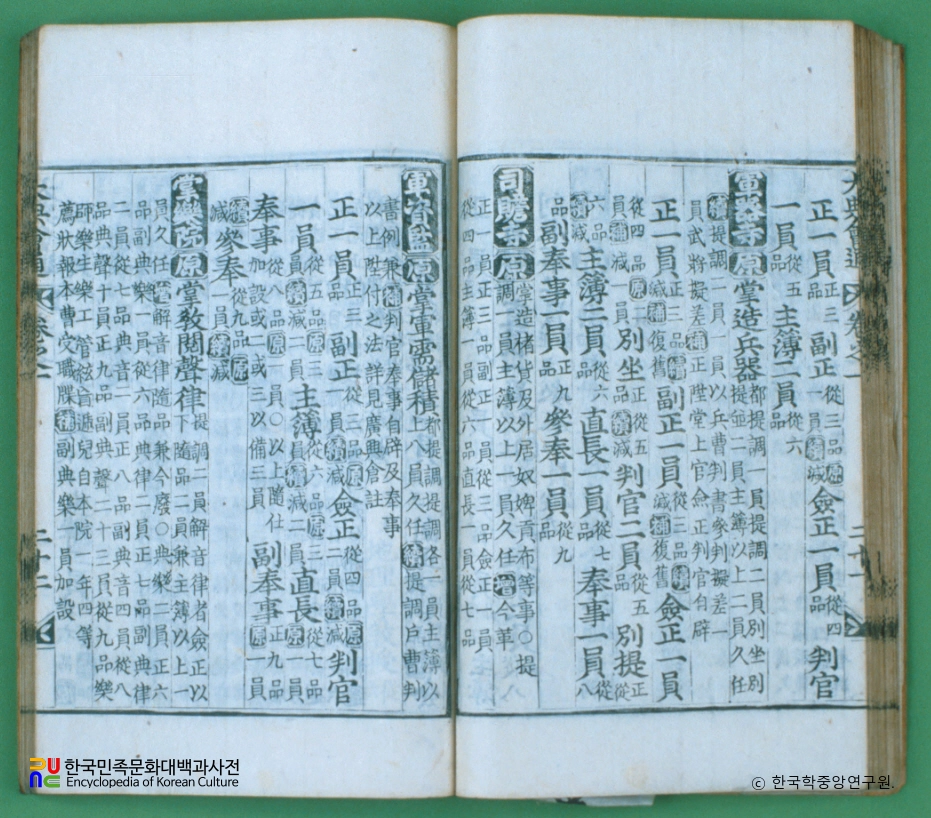 正一員正三品副正一員從三品原一員續減僉正一員從四品判官
一員從五品主薄二員從六品
軍器寺原掌造兵器都提調一員提調二員別坐別提並二員主簿以上二員久任
續提調一員以兵曹判書參判擬差一員武將擬差補正陞堂上官僉正判官自辟
正一員正三品續減補復舊副正一員從三品續減補復舊僉正一員
從四品原二員補減一員別坐從五品續減判官二員從五品別提正從
六品續減主簿二員從六品直長一員從七品奉事一員從八
品副奉事一員正九品參奉一員從九品
司贍寺原掌造楮貨及外居奴婢貢布等事○提調一員主簿以上一員久任增今革
正一員正三品副正一員從三品僉正一員從四品主簿一員從六品直長一員從七品
軍資監原掌軍需儲積都提調提調各一員主簿以上八員久任續提調戶曹判
書例兼補判官奉事自辟及奉事以上陞付之法詳見廣興倉註
正一員正三品副正一員從三品續減僉正一員從四品續減判官
一員從五品原三員續減二員主簿一員從六品原三員續減二員直長從七品原一員續減
奉事從八品原一員○以上隨仕加設或二或三以備三員副奉事正九品原一員
續減參奉從九品原一員續減
掌樂院原掌敎閱聲律提調二員解音律者僉正以下隨品二員兼主簿以上一
員久任增解音律隨品兼今廢○典樂二員正六品副典樂一員從六品典律二員正七品副典律
二員從七品典音二員正八品副典音四員從八品典聲十員正九品副典聲二十三員從九品樂
師樂生樂工管絃盲遞兒自本院一年四等薦狀報本曹受職牒補副典樂一員加設
大典會通 卷之一 二十一
大典會通 卷之一 二十二
한국민족문화대백과사전
Encyclopedia of Korean Culture
ⓒ 한국학중앙연구원.